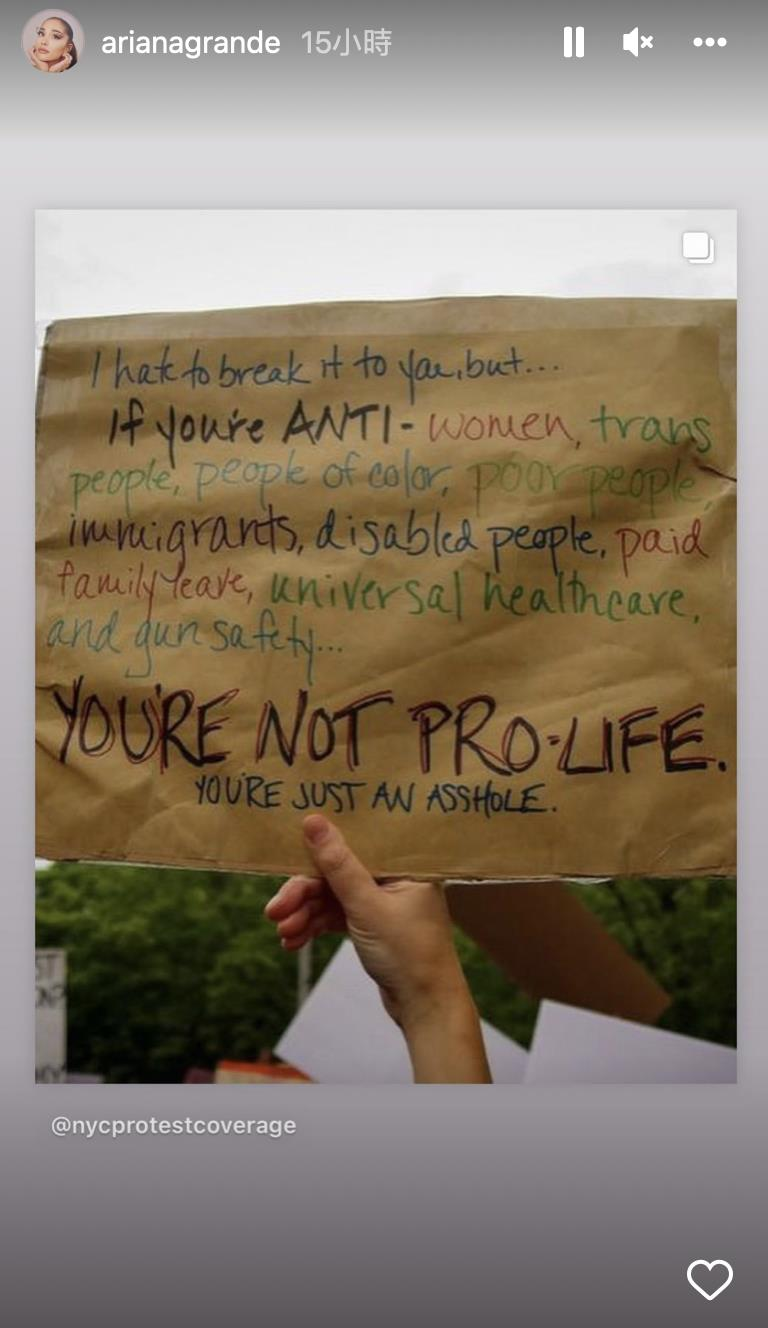 arianagrande 15小時
I hate to break it to you, but...
If you're ANTI- women, trans
people, people of color, poor people,
immigrants, disabled people, paid
family leave, universal healthcare,
and gun safety...
YOU'RE NOT PRO-LIFE.
YOU'RE JUST AN ASSHOLE.
@nycprotestcoverage